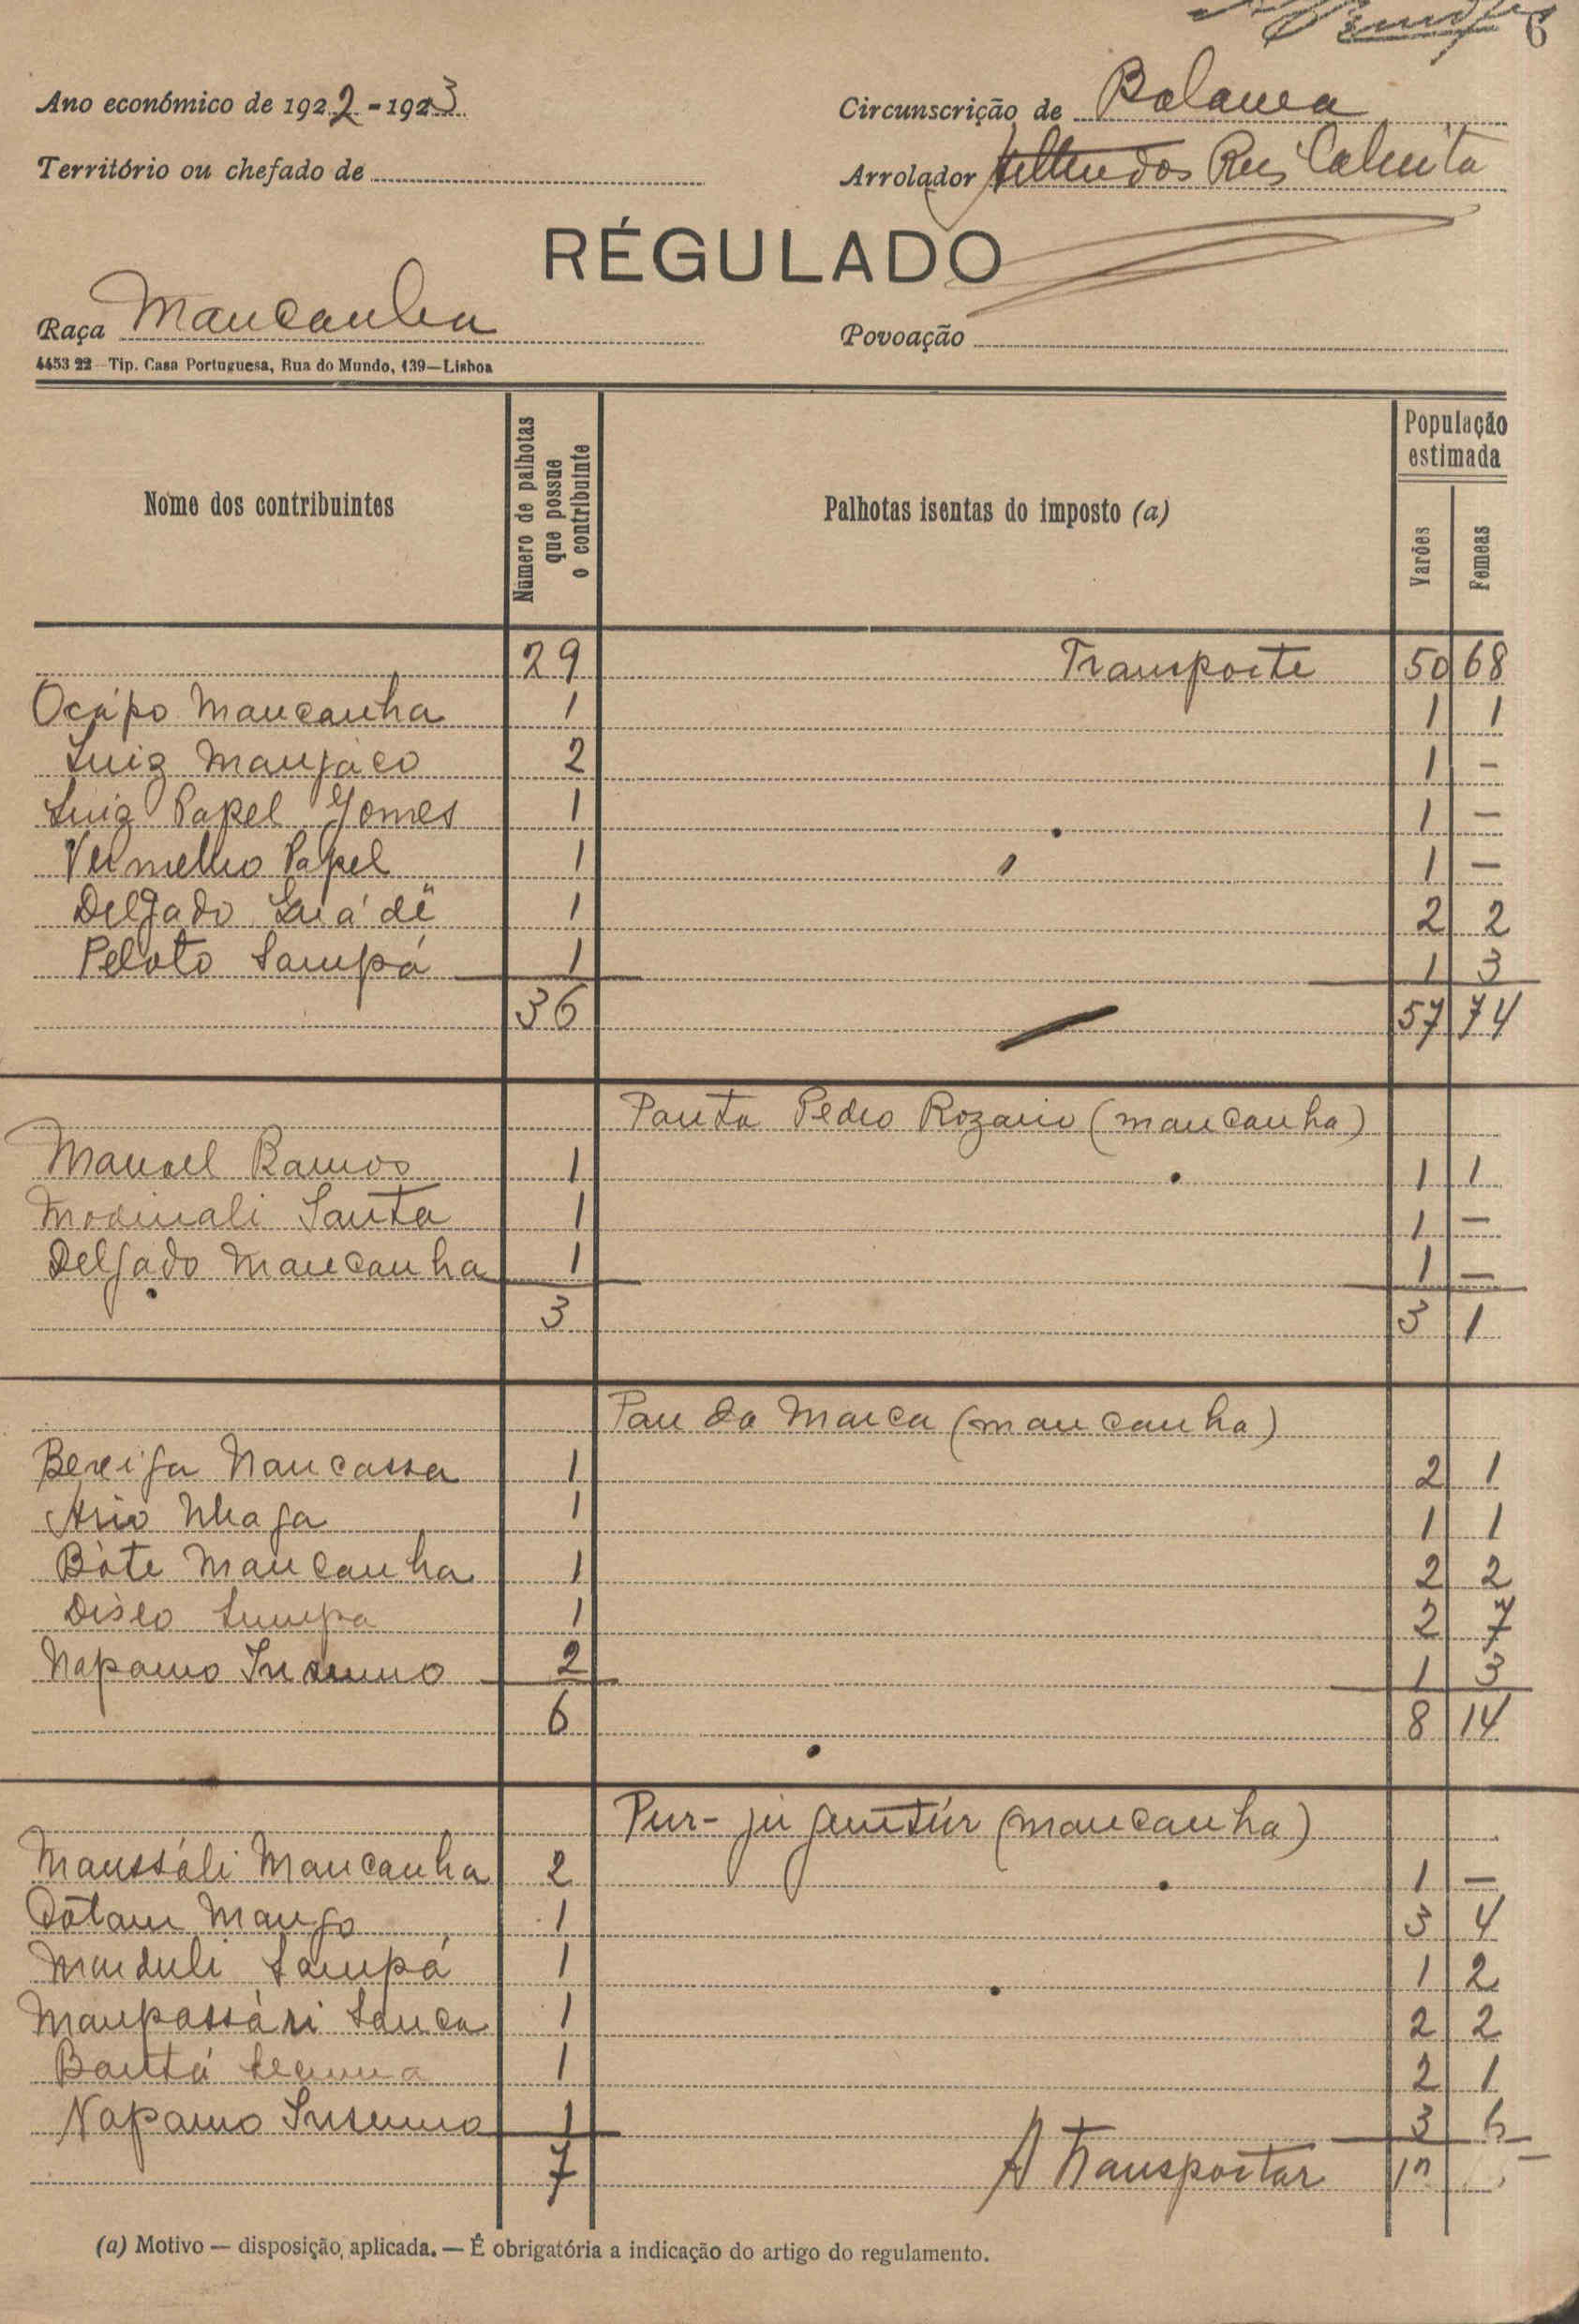 6
Ano económico de 1922-1923
Circunscrição de Bolama
Território ou chefado de
Arrolador dos Reis
RÉGULADO
Raça Mancanha
Povoação
4453 22—Tip. Casa Portuguesa, Rua do Mundo, 139—Lisboa
Nome dos contribuintes
Número de palhotas que possue o contribuinte
Palhotas isentas do imposto (a)
População estimada
Varões
Femeas
29 Transporte 50 68
Ocápo Mancanha 1 1 1
Luiz Manjaco 2 1 —
Luiz Papel Gomes 1 1 —
Vermelho Papel 1 1 —
Delgado 1 2 2
Peloto Sampá 1 1 3
36 57 74
Ponta Pedro Rozario (mancanha)
Manoel Ramos 1 1 1
Santa 1 1 —
Delgado Mancanha 1 1 —
3 3 1
Pau da Marca (mancanha)
Nancassa 1 2 1
Nhaga 1 1 1
Bóte Mancanha 1 2 2
1 2 7
Napamo 2 1 3
6 8 14
(mancanha)
Manssáli Mancanha 2 1 —
Mango 1 3 4
Sampá 1 1 2
1 2 2
1 2 1
Napamo 1 3 6
7 A Transportar
(a) Motivo — disposição aplicada. — É obrigatória a indicação do artigo do regulamento.